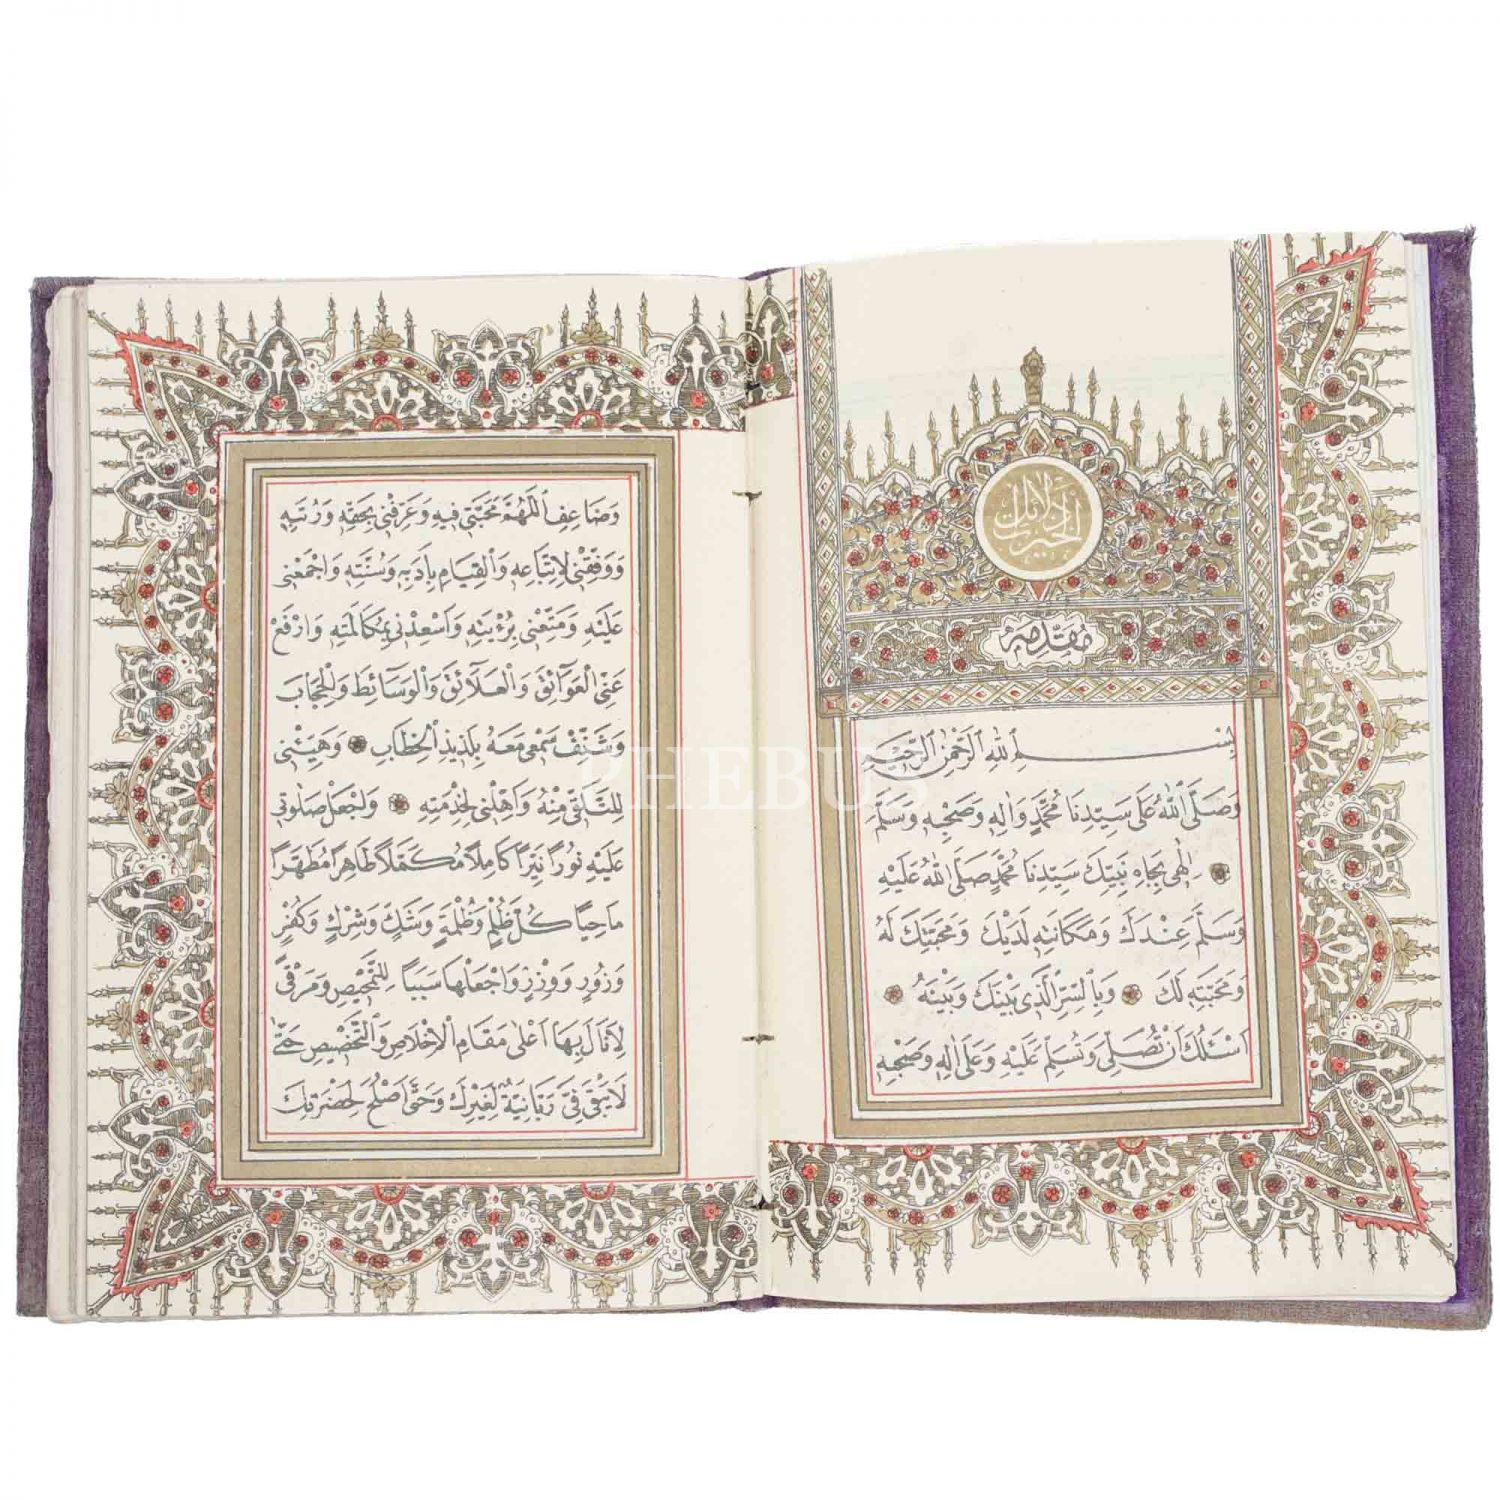 دلائل الخيرات
مقدمه
بِسْمِ اللهِ الرَّحْمٰنِ الرَّحِيمِ
وَصَلَّى اللهُ عَلَى سَيِّدِنَا مُحَمَّدٍ وَاٰلِهِ وَصَحْبِهِ وَسَلَّمَ
اِلٰهِى بِجَاهِ نَبِيِّكَ سَيِّدِنَا مُحَمَّدٍ صَلَّى اللهُ عَلَيْهِ
وَسَلَّمَ عِنْدَكَ وَمَكَانَتِهِ لَدَيْكَ وَمَحَبَّتِكَ لَهُ
وَمَحَبَّتِهِ لَكَ وَبِالسِّرِّ الَّذِى بَيْنَكَ وَبَيْنَهُ
اَسْئَلُكَ اَنْ تُصَلِّىَ وَتُسَلِّمَ عَلَيْهِ وَعَلَى اٰلِهِ وَصَحْبِهِ
وَضَاعِفِ اللّٰهُمَّ مَحَبَّتِى فِيهِ وَعَرِّفْنِى بِحَقِّهِ وَرُتَبِهِ
وَوَفِّقْنِى لِاتِّبَاعِهِ وَالْقِيَامِ بِاَدَبِهِ وَسُنَّتِهِ وَاجْمَعْنِى
عَلَيْهِ وَمَتِّعْنِى بِرُؤْيَتِهِ وَاَسْعِدْنِى بِمُكَالَمَتِهِ وَارْفَعْ
عَنِّى الْعَوَآئِقَ وَالْعَلَآئِقَ وَالْوَسَآئِطَ وَالْحِجَابَ
وَشَنِّفْ سَمْعِى مَعَهُ بِلَذِيذِ الْخِطَابِ وَهَيِّئْنِى
لِلتَّلَقِّى مِنْهُ وَاَهِّلْنِى لِخِدْمَتِهِ وَاجْعَلْ صَلٰوتِى
عَلَيْهِ نُورًا نَيِّرًا كَامِلًا مُكَمَّلًا طَاهِرًا مُطَهَّرًا
مَاحِيًا كُلَّ ظُلْمٍ وَظُلْمَةٍ وَشَكٍّ وَشِرْكٍ وَكُفْرٍ
وَزُورٍ وَوِزْرٍ وَاجْعَلْهَا سَبَبًا لِلتَّمْحِيصِ وَمَرْقًى
لِاَنَالَ بِهَا اَعْلٰى مَقَامِ الْاِخْلَاصِ وَالتَّخْصِيصِ حَتّٰى
لَا يَبْقٰى فِىَّ رَبَّانِيَّةٌ لِغَيْرِكَ وَحَتّٰى اَصْلُحَ لِحَضْرَتِكَ
PHEBUS